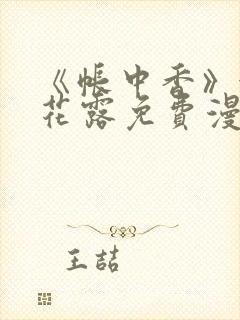 《帐中香》
花露免费漫
王喆